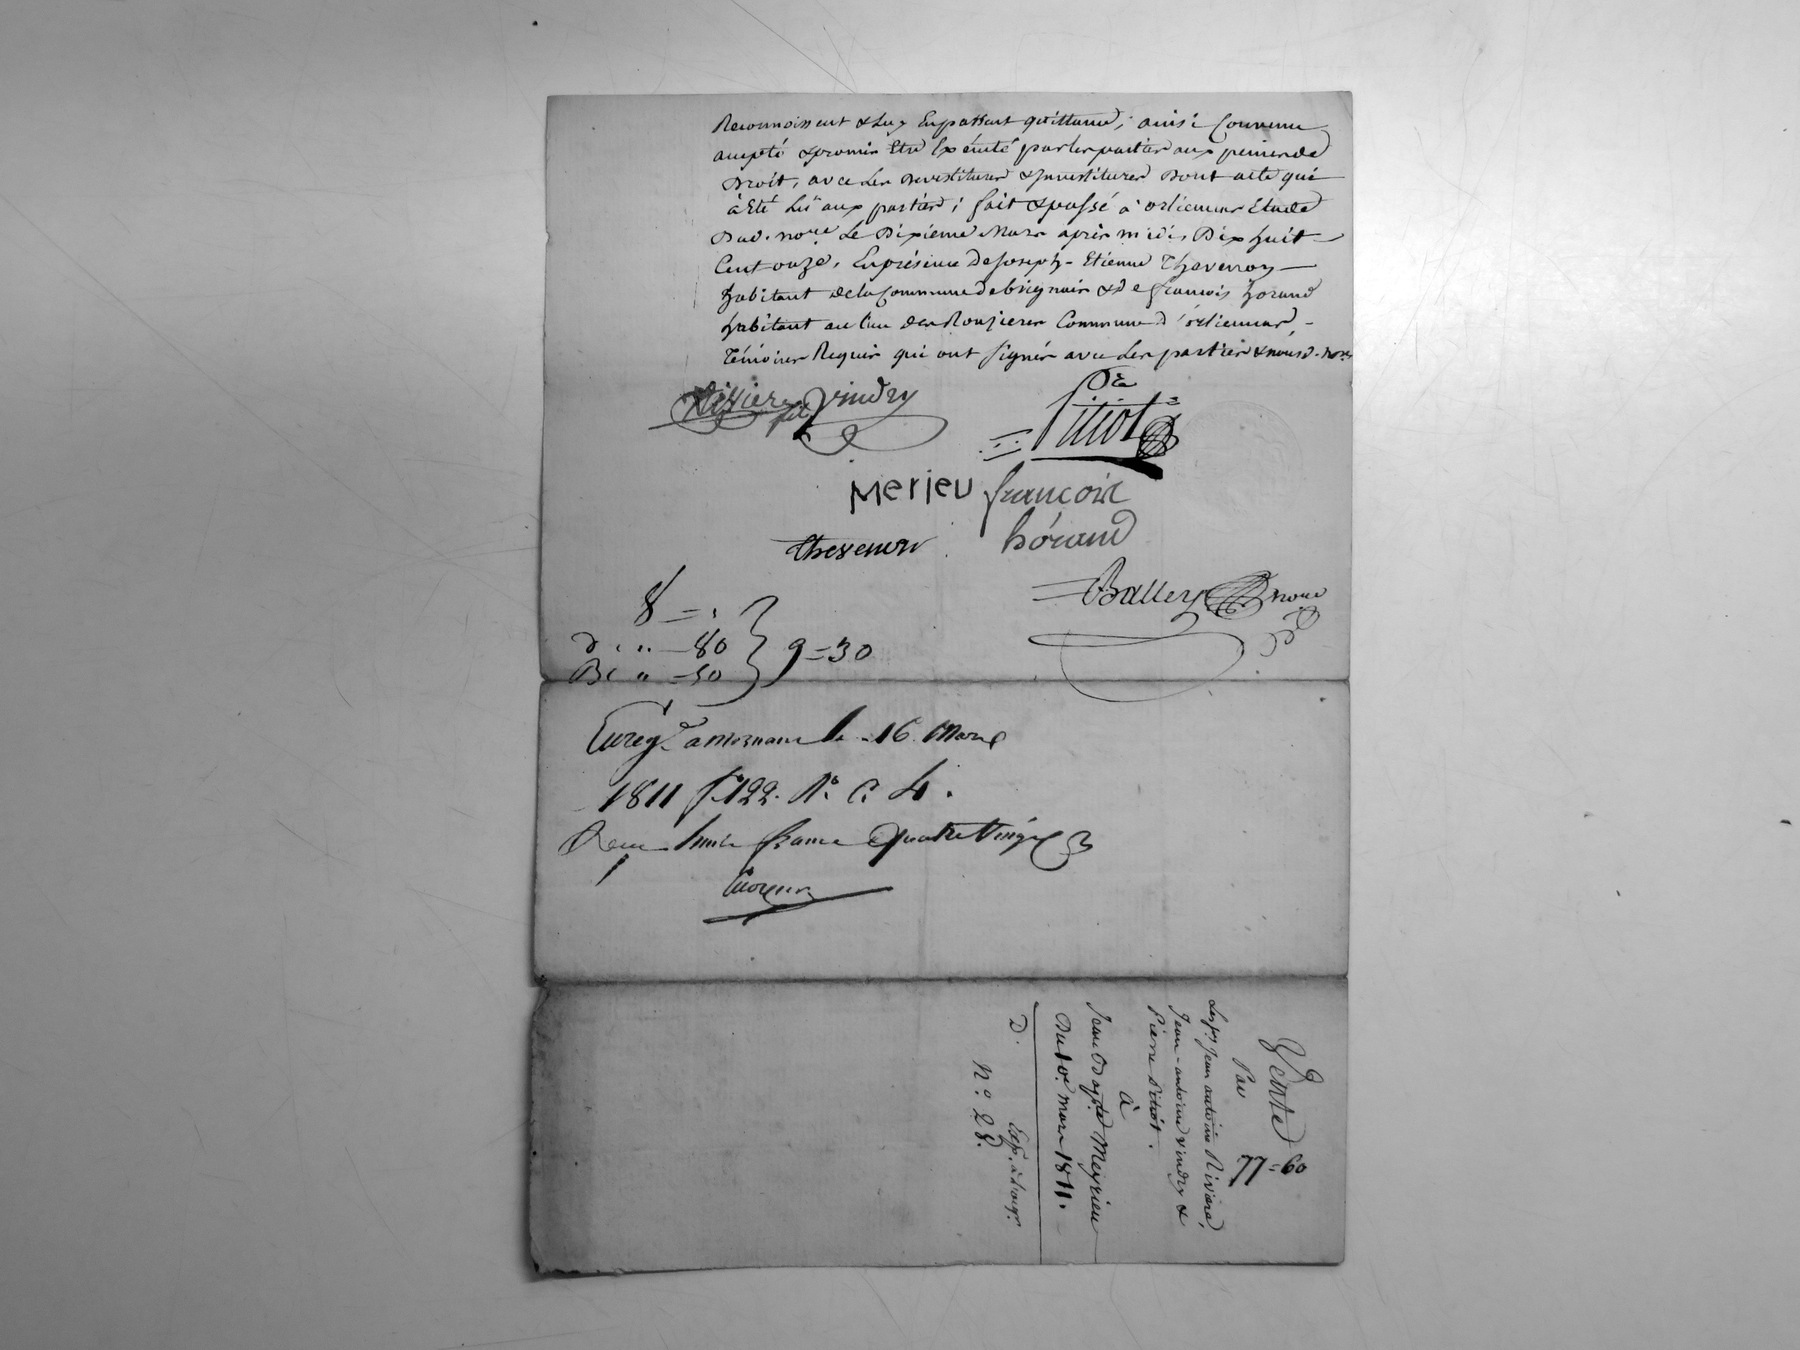 Reconnoissent & luy Enpassent quittance, ainsi Convenu
accepté & promis Etre Exécuté par les parties aux peines de
Droit, avec les Devestitures & Investitures Dont acte qui
à Eté Lû aux parties; fait & passé à orlienas Etude
Dud. noue. Le Dixieme Mars après midi, Dix huit
Cent onze, Enprésence De Joseph-Etienne Thevenon
habitant de la Commune de brignais & de françois horand
habitant au lieu des Commune d'orlienas,
Témoins Requis qui ont signés avec les parties & nousd. nore
Rivière fils Vindry
Pitiot
Merieu françois
Thevenon horand
Balley noue
8 = "
d. " - 80 } 9=30
" - 50
Enregé. a mornant le 16 Mars
1811 f. 122. Ro. C. 4.
Recu huit francs quatre Vingt
Vente
77=60
Par
Les srs Jean antoine Rivière,
Jean-antoine vindry &
Pierre Pitiot.
à
Jean Bapte Meyrieu
Du 10. mars 1811.
D.
Exp. à
N.o 28.